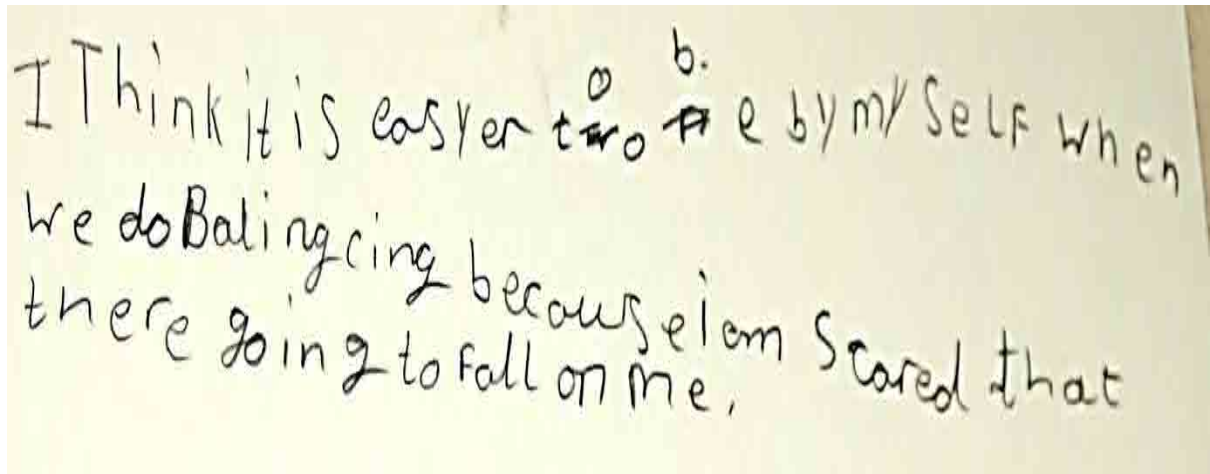 I Think it is easyer to be by my self when
we do Balingcing becouse i am scared that
there going to fall on me.